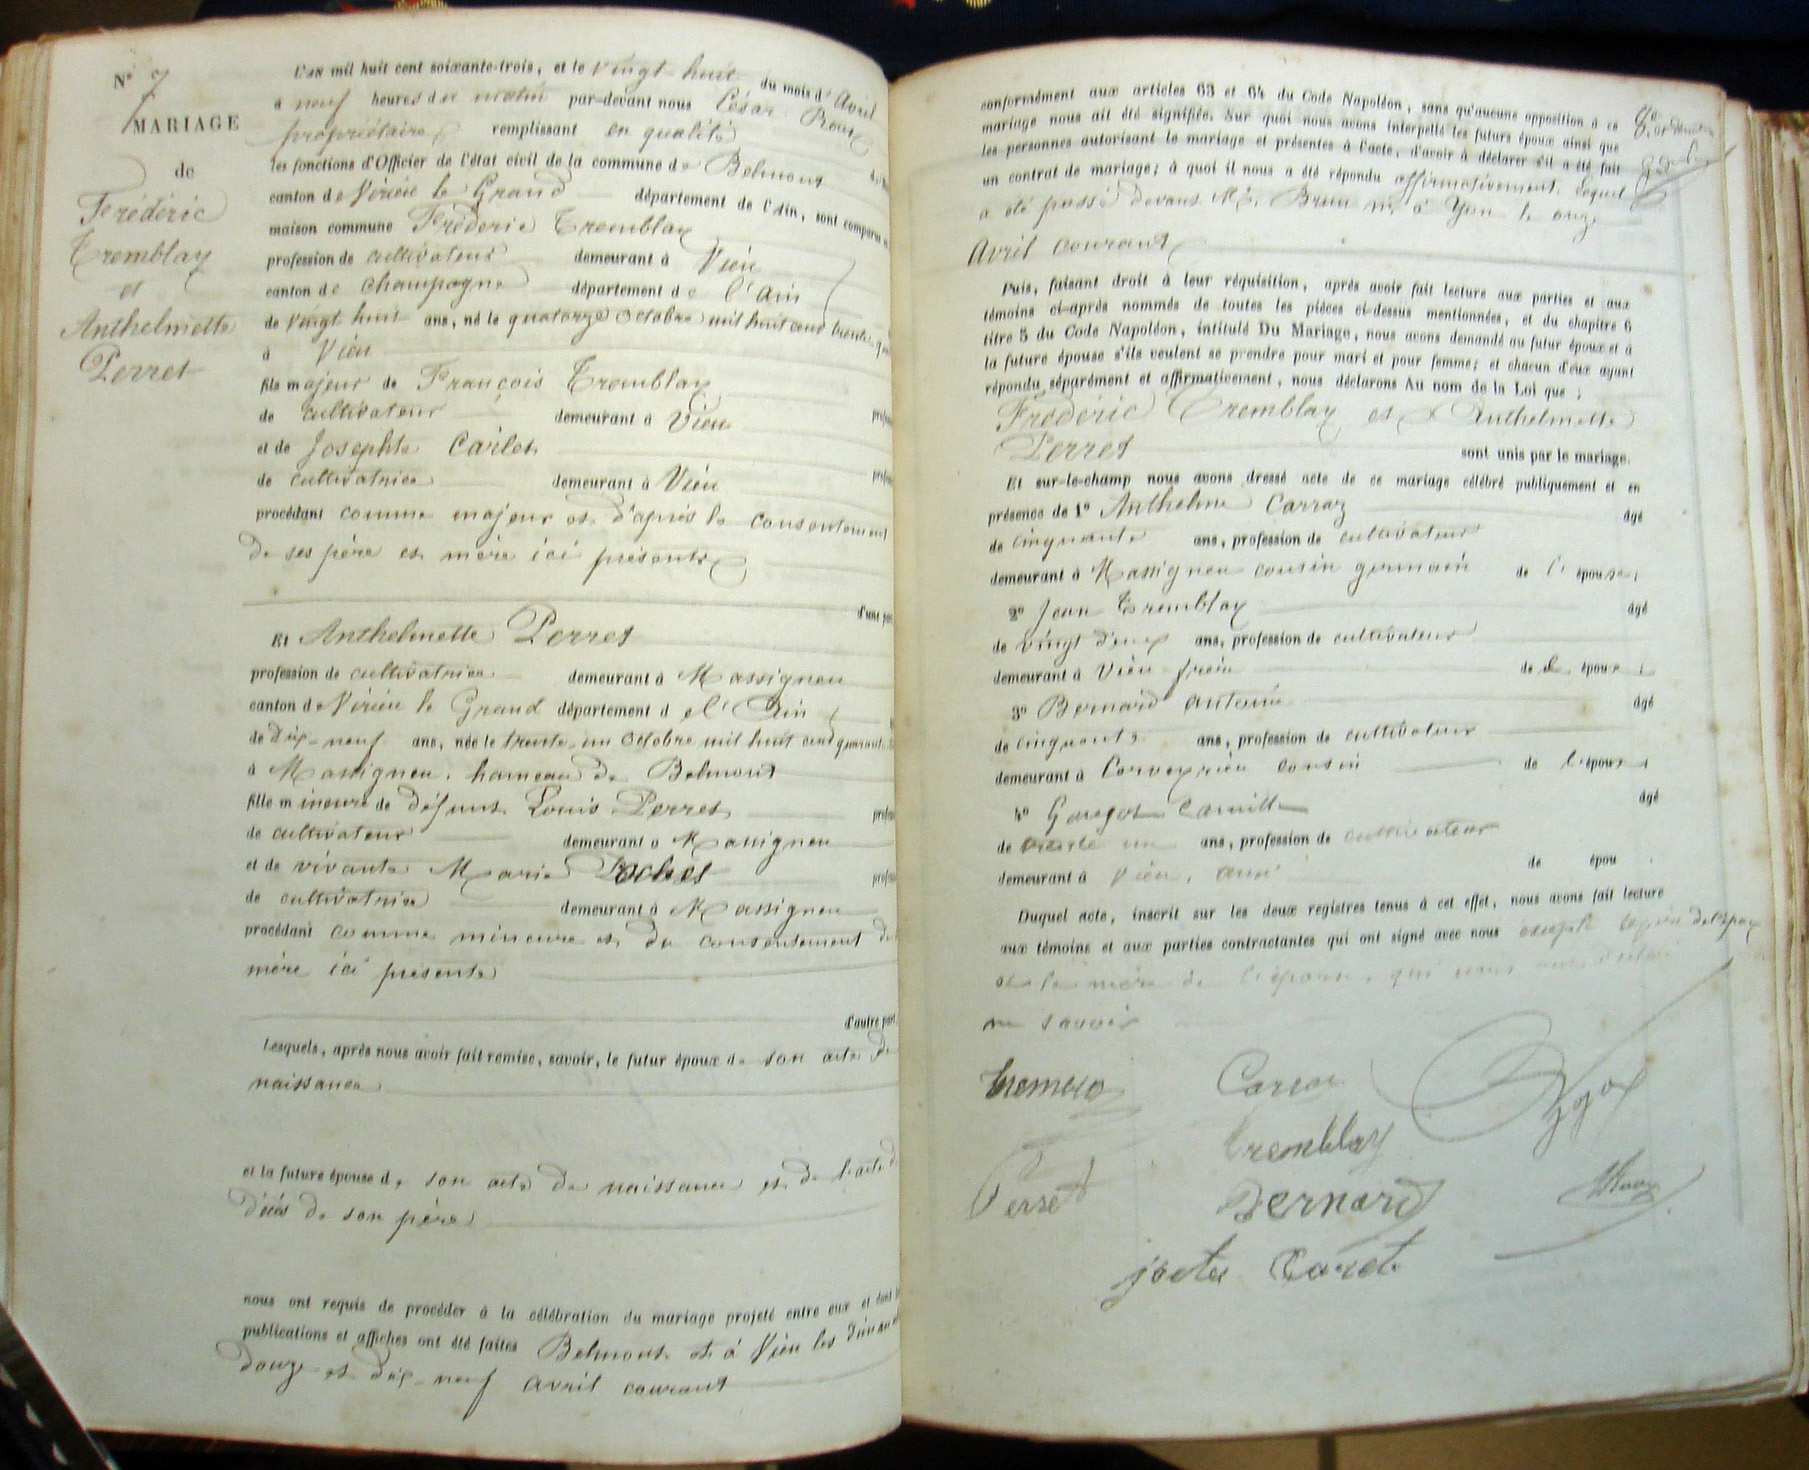 N° 7
MARIAGE
de
Frédéric
Tremblay
et
Anthelmette
Perret
L'an mil huit cent soixante-trois, et le vingt huit du mois d' Avril
à neuf heures du matin par-devant nous César Roux
propriétaire remplissant en qualité
les fonctions d'Officier de l'état civil de la commune de Belmont
canton de Virieu le Grand département de l'Ain, sont comparus
maison commune Fréderic Tremblay
profession de cultivateur demeurant à Vieu
canton de champagne département de l'Ain
de vingt huit ans, né le quatorze octobre mil huit cent trente
à Vieu
fils majeur de François Tremblay
de cultivateur demeurant à Vieu
et de Josephte Carlet
de cultivatrice demeurant à Vieu
procédant comme majeur et d'après le consentement
de ses père et mère ici présents
d'une par
Et Anthelmette Perret
profession de cultivatrice demeurant à Massigneu
canton de Virieu le Grand département de l'Ain
de dix-neuf ans, née le trente-un octobre mil huit cent quarante
à Massigneu, hameau de Belmont
fille mineure de défunt Louis Perret
de cultivateur demeurant à Massigneu
et de vivante Marie Rochet
de cultivatrice demeurant à Massigneu
procédant comme mineure et du consentement de
mère ici présente
d'autre part
Lesquels, après nous avoir fait remise, savoir, le futur époux de son acte de
naissance
et la future épouse de son acte de naissance et de l'acte de
décès de son père
nous ont requis de procéder à la célébration du mariage projeté entre eux et dont
publications et affiches ont été faites Belmont et à Vieu les dimanches
douze et dix-neuf avril courant
conformément aux articles 63 et 64 du Code Napoléon, sans qu'aucune opposition à ce
mariage nous ait été signifiée. Sur quoi nous avons interpellé les futurs époux ainsi que
les personnes autorisant le mariage et présentes à l'acte, d'avoir à déclarer s'il a été fait
un contrat de mariage; à quoi il nous a été répondu affirmativement, lequel
a été passé devant Me. Brun à Yon le onze
Avril courant
Puis, faisant droit à leur réquisition, après avoir fait lecture aux parties et aux
témoins ci-après nommés de toutes les pièces ci-dessus mentionnées, et du chapitre 6
titre 5 du Code Napoléon, intitulé Du Mariage, nous avons demandé au futur époux et à
la future épouse s'ils veulent se prendre pour mari et pour femme; et chacun d'eux ayant
répondu séparément et affirmativement, nous déclarons Au nom de la Loi que :
Fréderic Tremblay et Anthelmette
Perret sont unis par le mariage.
Et sur-le-champ nous avons dressé acte de ce mariage célébré publiquement et en
présence de 1° Anthelme Carraz âgé
de cinquante ans, profession de cultivateur
demeurant à Massigneu cousin germain de l'épouse;
2° Jean Tremblay âgé
de vingt deux ans, profession de cultivateur
demeurant à Vieu frère de époux;
3° Bernard antoine âgé
de cinquante ans, profession de cultivateur
demeurant à Corveyrieu cousin de l'épouse
4° Camille âgé
de trente un ans, profession de cultivateur
demeurant à Vieu, ami de épou
Duquel acte, inscrit sur les deux registres tenus à cet effet, nous avons fait lecture
aux témoins et aux parties contractantes qui ont signé avec nous excepté le père de l'époux
et la mère de l'épouse, qui nous ont déclaré
ne savoir
Tremblay
Perret
Tremblay
Bernard
Roux